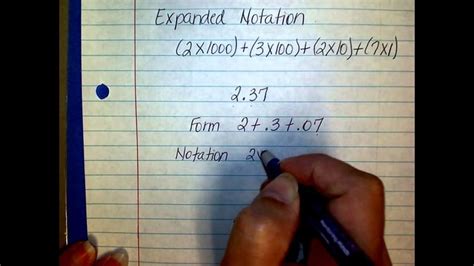 Expanded Notation
(2x1000)+(3x100)+(2x10)+(7x1)
2.37
Form 2+.3+.07
Notation 2x